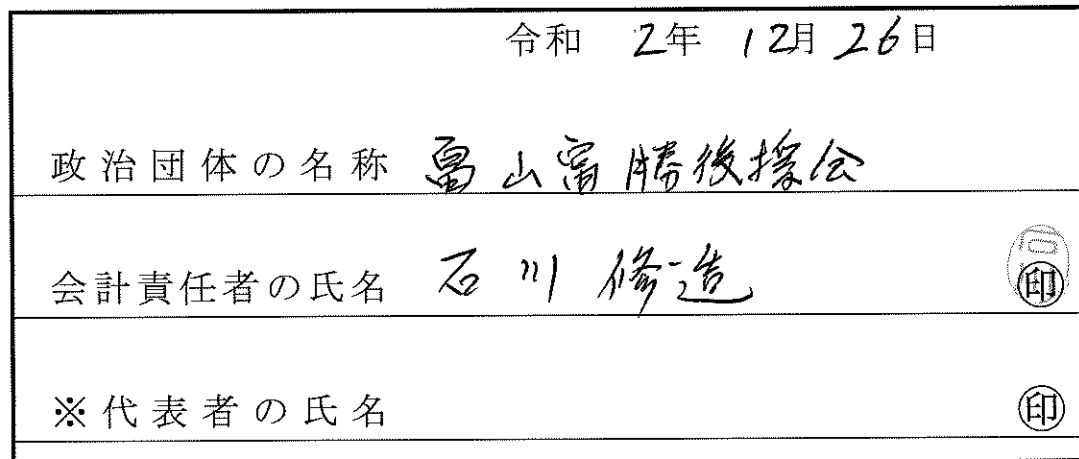 令和 2年 12月 26日
政治団体の名称 畠山富勝後援会
会計責任者の氏名 石川 修造 印
※代表者の氏名 印